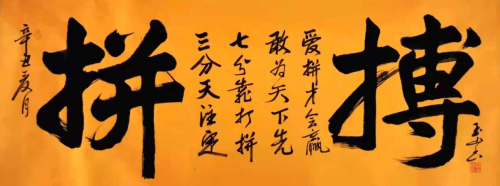 拼
搏
爱拼才会赢
敢为天下先
七分靠打拼
三分天注定
辛丑夏月